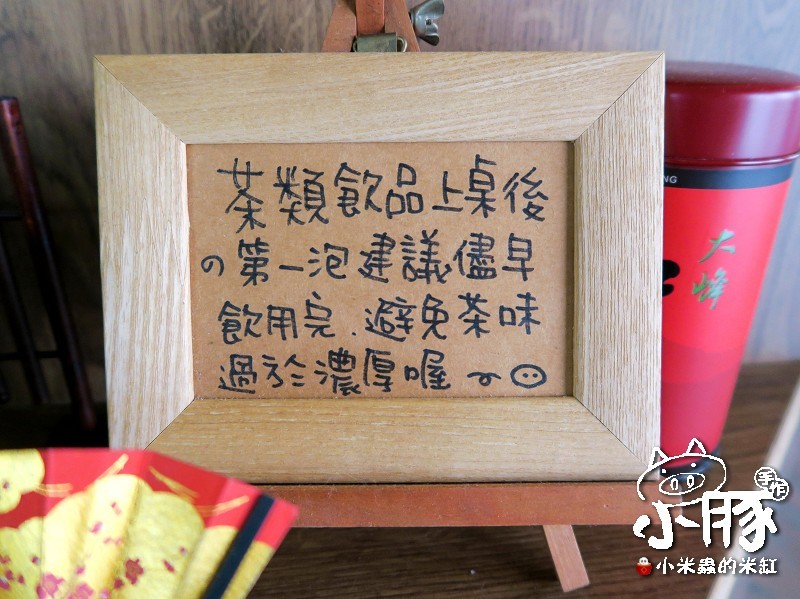 茶類飲品上桌後
の第一泡建議儘早
飲用完.避免茶味
過於濃厚喔
大峰
NG
手作
小豚
小米蟲的米缸